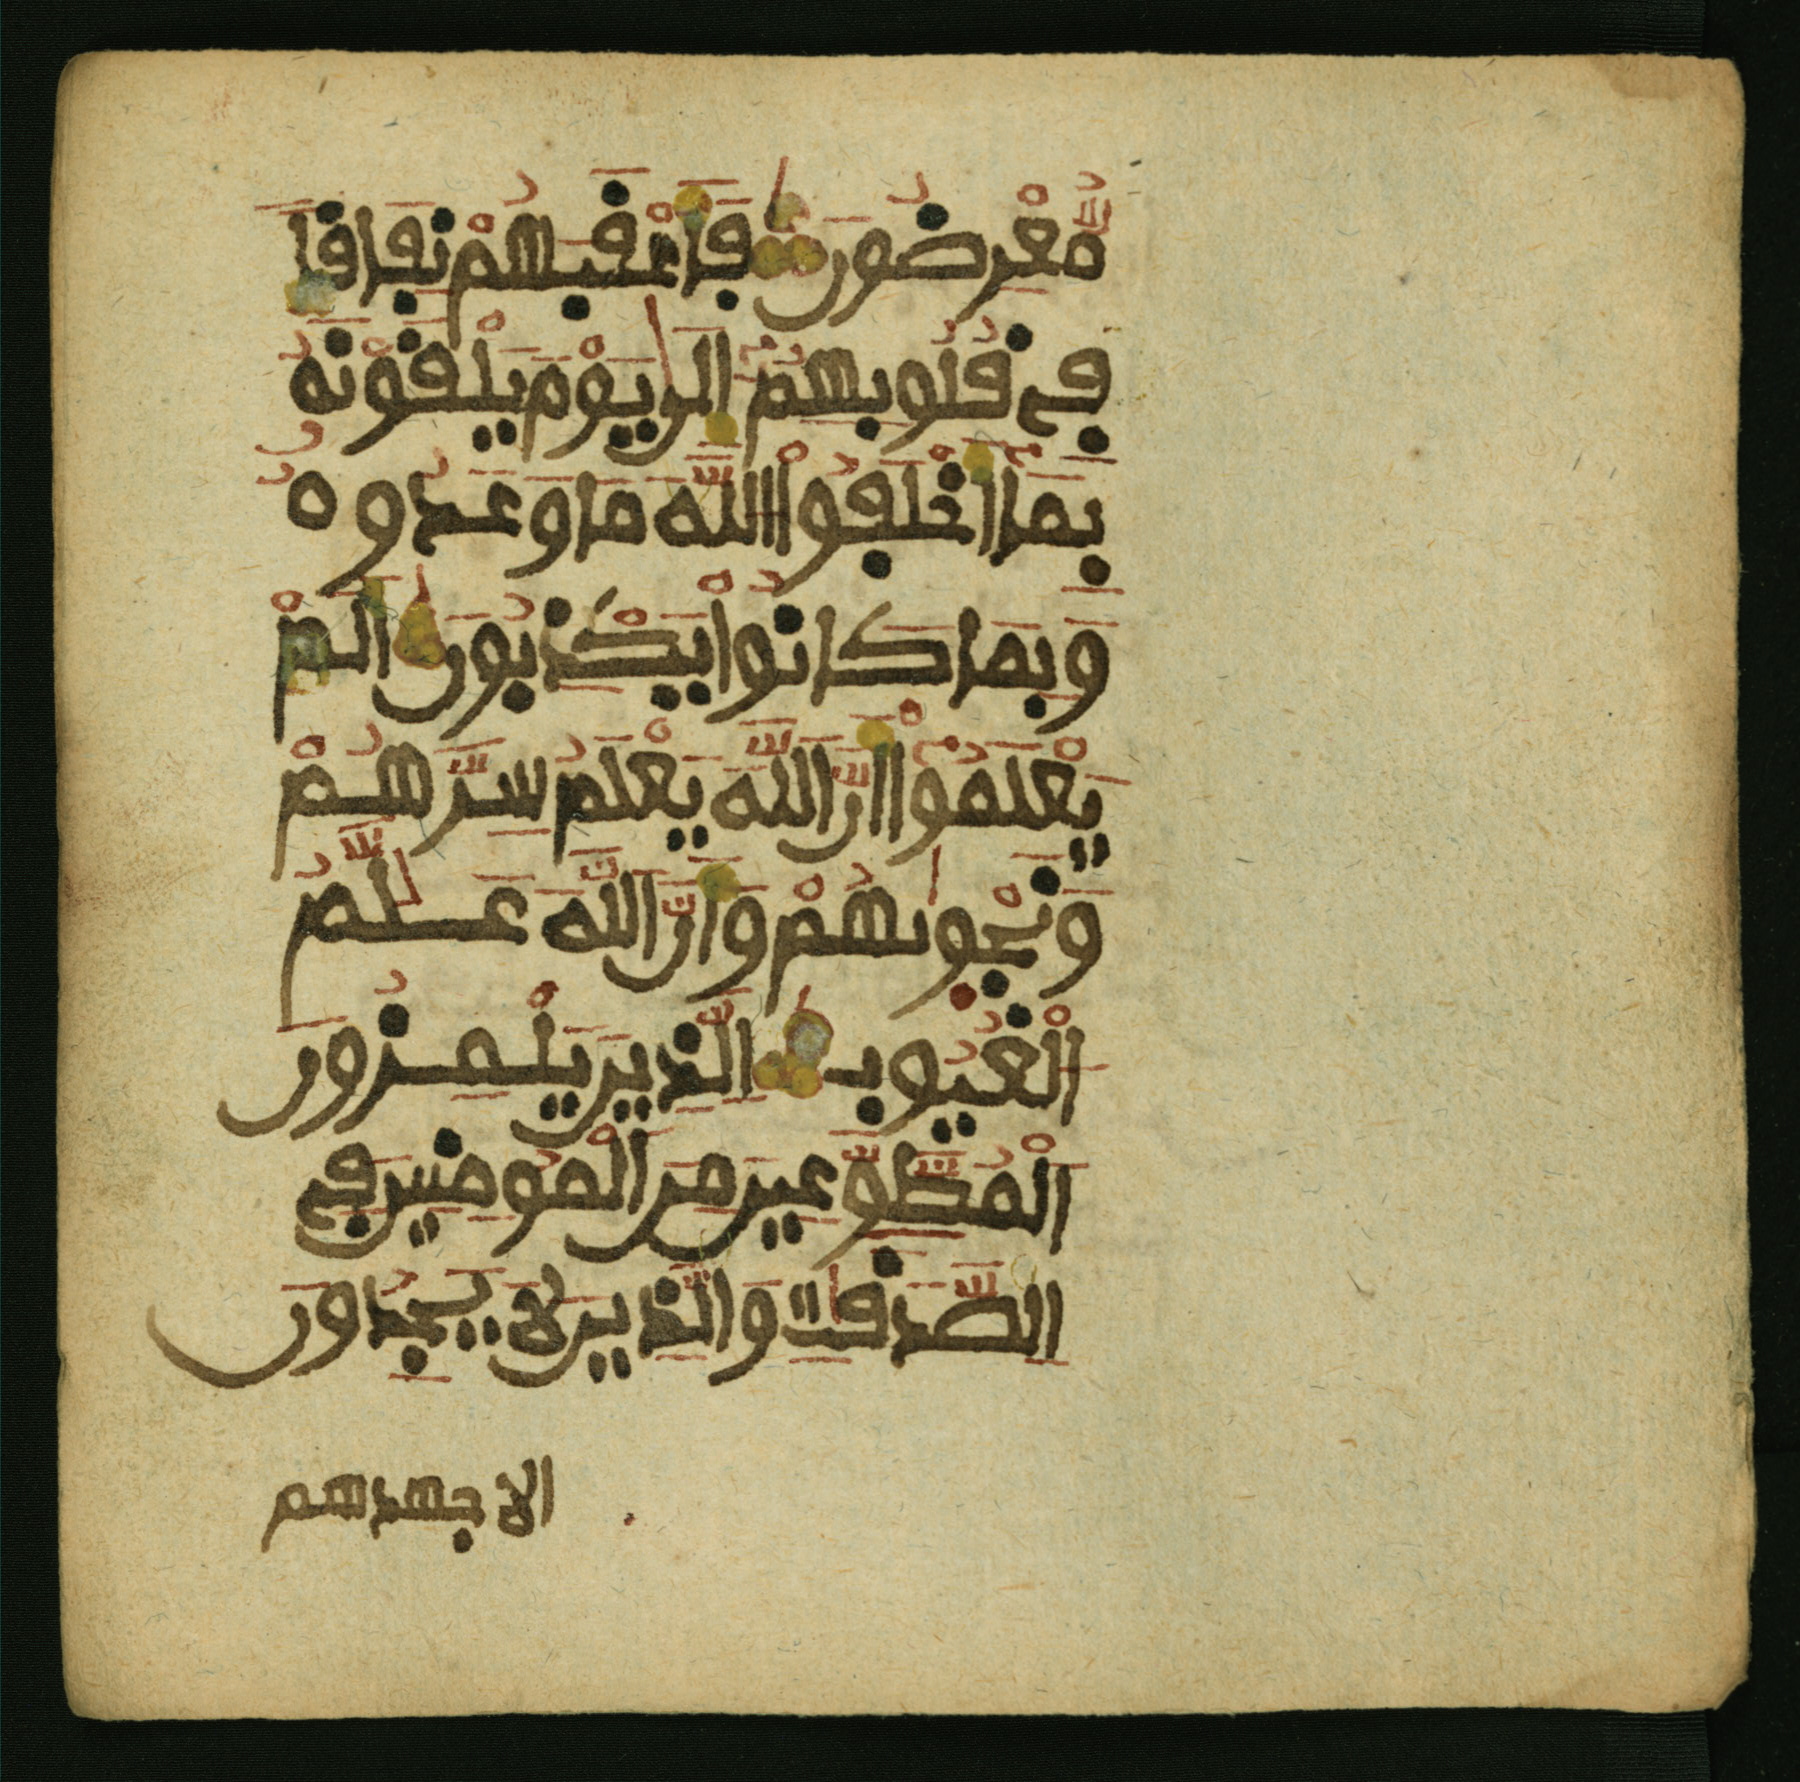 مُّعْرِضُونَ فَأَعْقَبَهُمْ نِفَاقًا
فِے قُلُوبِهِمُۥٓ إِلَىٰ يَوْمِ يَلْقَوْنَهُۥ
بِمَآ أَخْلَفُواْ اللَّهَ مَا وَعَدُوهُ
وَبِمَا كَانُواْ يَكْذِبُونَ أَلَمْ
يَعْلَمُوٓاْ أَنَّ اللَّهَ يَعْلَمُ سِرَّهُمْ
وَنَجْوٜىٰهُمْ وَأَنَّ اللَّهَ عَلَّٰمُ
الْغُيُوبِ الَّذِينَ يَلْمِزُونَ
الْمُطَّوِّعِينَ مِنَ الْمُومِنِينَ فِے
الصَّدَقَٰتِ وَالَّذِينَ لَا يَجِدُونَ
الا جهدهم